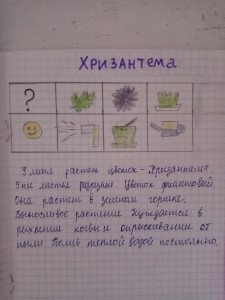 Хризантема
?
У меня растет цветок - Хризантема
У неё листья разрезные. Цветок фиолетовый.
Она растет в зеленом горшке.
Выносливое растение. Нуждается в
рыхлении почвы и опрыскивании от
пыли. Полив теплой водой постоянно.